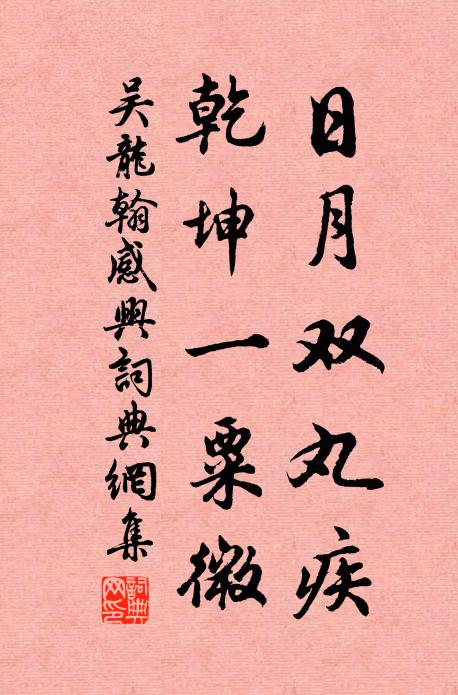 日月双丸疾
乾坤一粟微
吴龍翰感興詞典網集
詞典网印